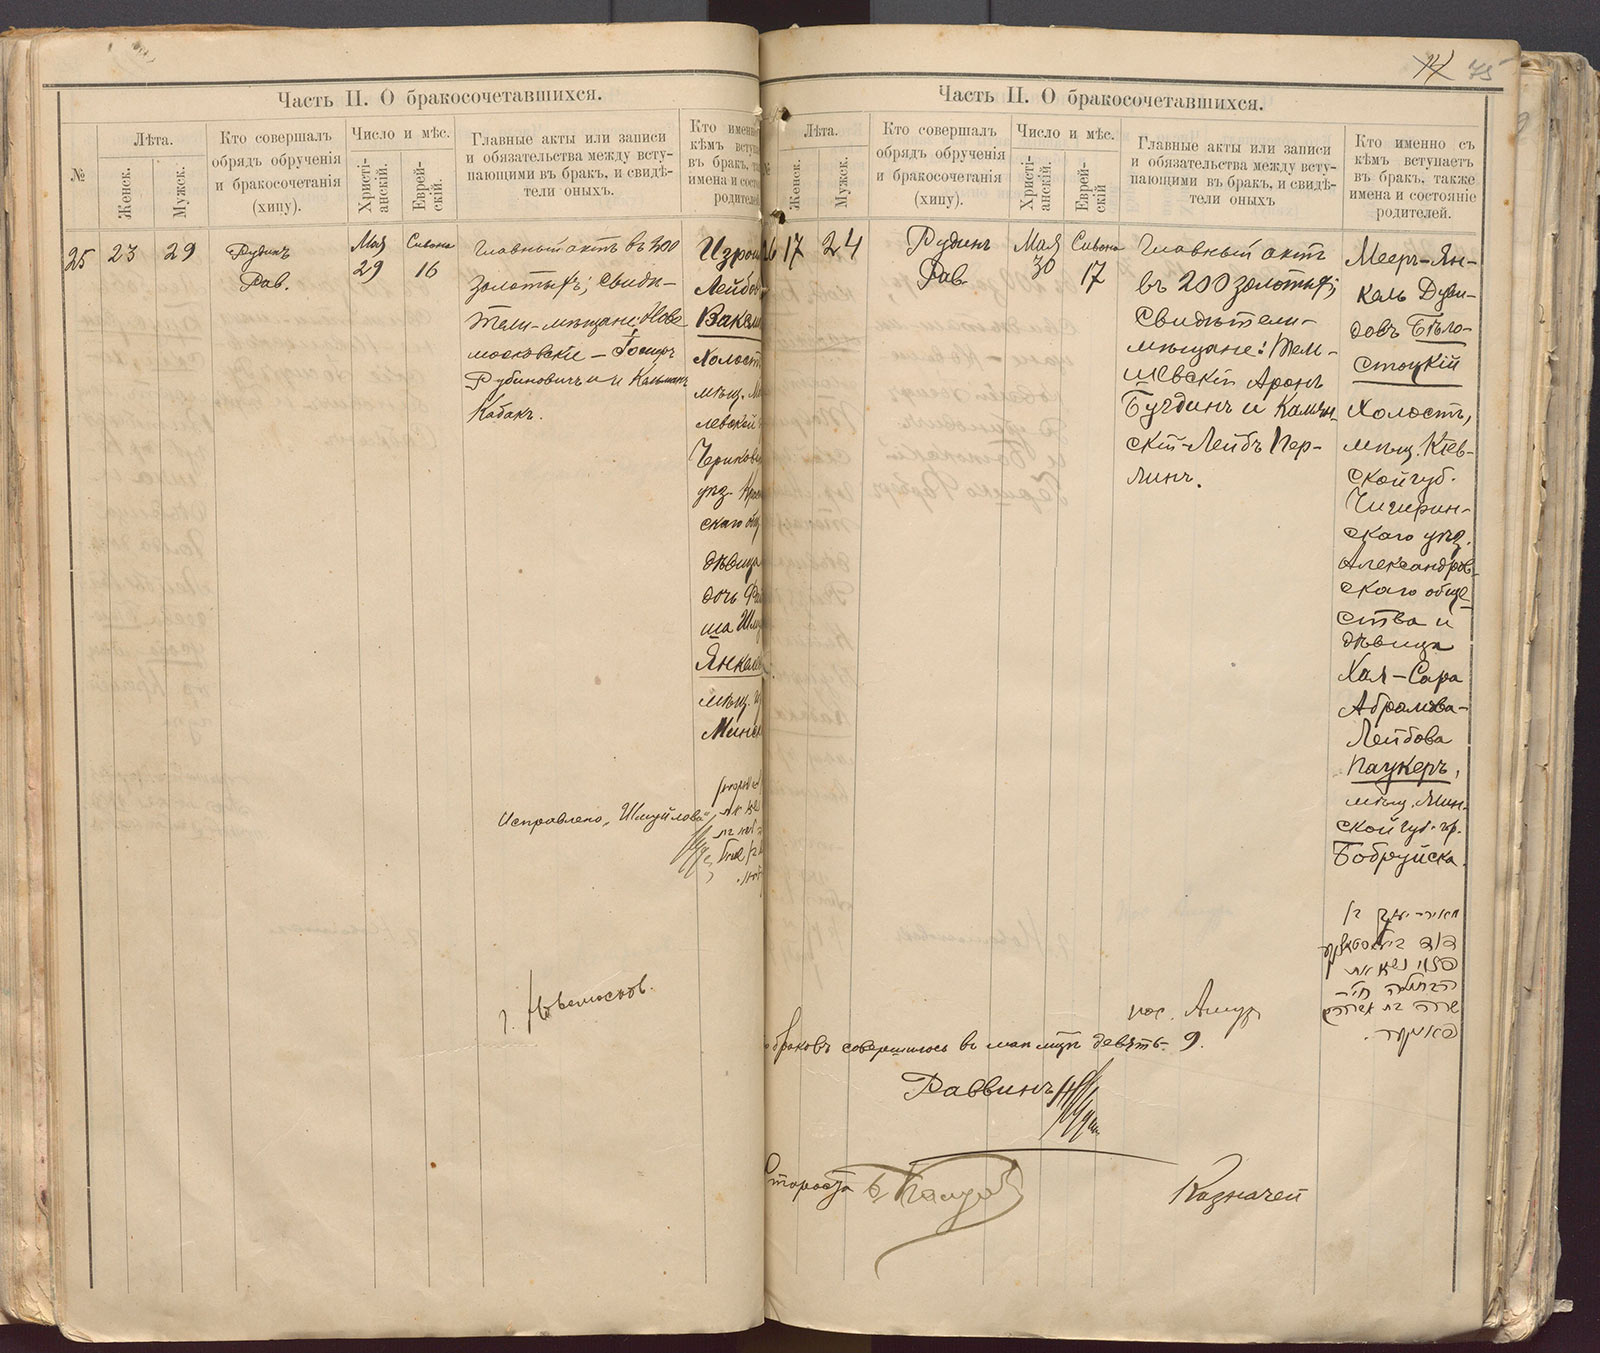 Часть II. О бракосочетавшихся.
№
Лѣта.
Женск.
Мужск.
Кто совершалъ
обрядъ обрученія
и бракосочетанія
(хипу).
Число и мѣс.
Христі-
анскій.
Еврей-
скій.
Главные акты или записи
и обязательства между всту-
пающими въ бракъ, и свидѣ-
тели оныхъ.
Кто именно
кѣмъ вступ
въ бракъ, та
имена и состо
родителе
25
23
29
Рудинъ
Рав.
Мая
29
Сивона
16
Главный актъ въ 300
золотыхъ; свидѣ-
тели-мѣщане: Ново
московскіе –
Рубиновичъ и Кальманъ
Кабакъ.
Изро
Лейбо
Вакал
Холост
мѣщ. Мо
левской
Чериков
уѣз.
скаго общ
дѣвица
дочь
ша Шму
Янкеле
мѣщ.
Минс
Исправлено „Шмуйлова"
г. Новомоск.
75
Часть II. О бракосочетавшихся.
Лѣта.
Женск.
Мужск.
Кто совершалъ
обрядъ обрученія
и бракосочетанія
(хипу).
Число и мѣс.
Христі-
анскій.
Еврей-
скій
Главные акты или записи
и обязательства между всту-
пающими въ бракъ, и свидѣ-
тели оныхъ
Кто именно съ
кѣмъ вступаетъ
въ бракъ, также
имена и состояніе
родителей.
26
17
24
Рудинъ
Рав.
Мая
30
Сивона
17
Главный актъ
въ 200 золотых;
Свидѣтели-
мѣщане:
Аронъ
и
скій-Лейбъ Пер-
линъ.
Мееръ-Ян-
кель Дуви-
довъ Бѣло-
стоцкій
Холостъ,
мѣщ. Кіев-
ской губ.
Чигирин-
скаго уѣз.
Александров-
скаго обще-
ства и
дѣвица
Хая-Сара
Абрамова-
Лейбова
Паукеръ,
мѣщ. Мин-
ской губ. гр.
Бобруйска.
מאיר-יעקב בן
דוד ביאלסטאצקי
הפנוי נשא את
הבתולה חי׳-
שרה בת אברהם
פאוקער.
пос. Амур
браковъ совершилось въ маѣ мцѣ девять 9.
Раввинъ
Староста
Казначей